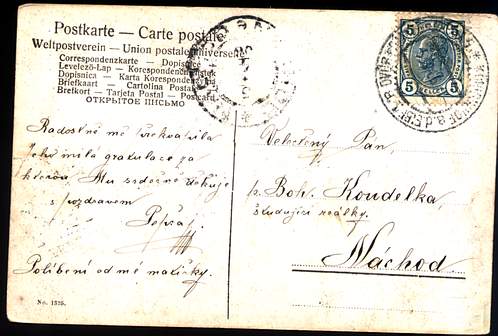 Postkarte — Carte postale
Weltpostverein — Union postale universelle
Correspondenzkarte — Dopisnice
Levelező-Lap — Korespondenčni listek
Dopisnica — Karta Korespondencyjna
Briefkaart — Cartolina Postale
Brefkort — Tarjeta Postal — Postcard
ОТКРЫТОЕ ПИСЬМО
5 5
5 5
Radostně mě překvapila
Tehy milá gratulace za
kterou Mu srdečně děkuje
s pozdravem
Pepža
Políbení od mé matičky.
Velectěný Pan,
p. Boh. Koudelka,
študující reálky
Náchod
No. 1525.